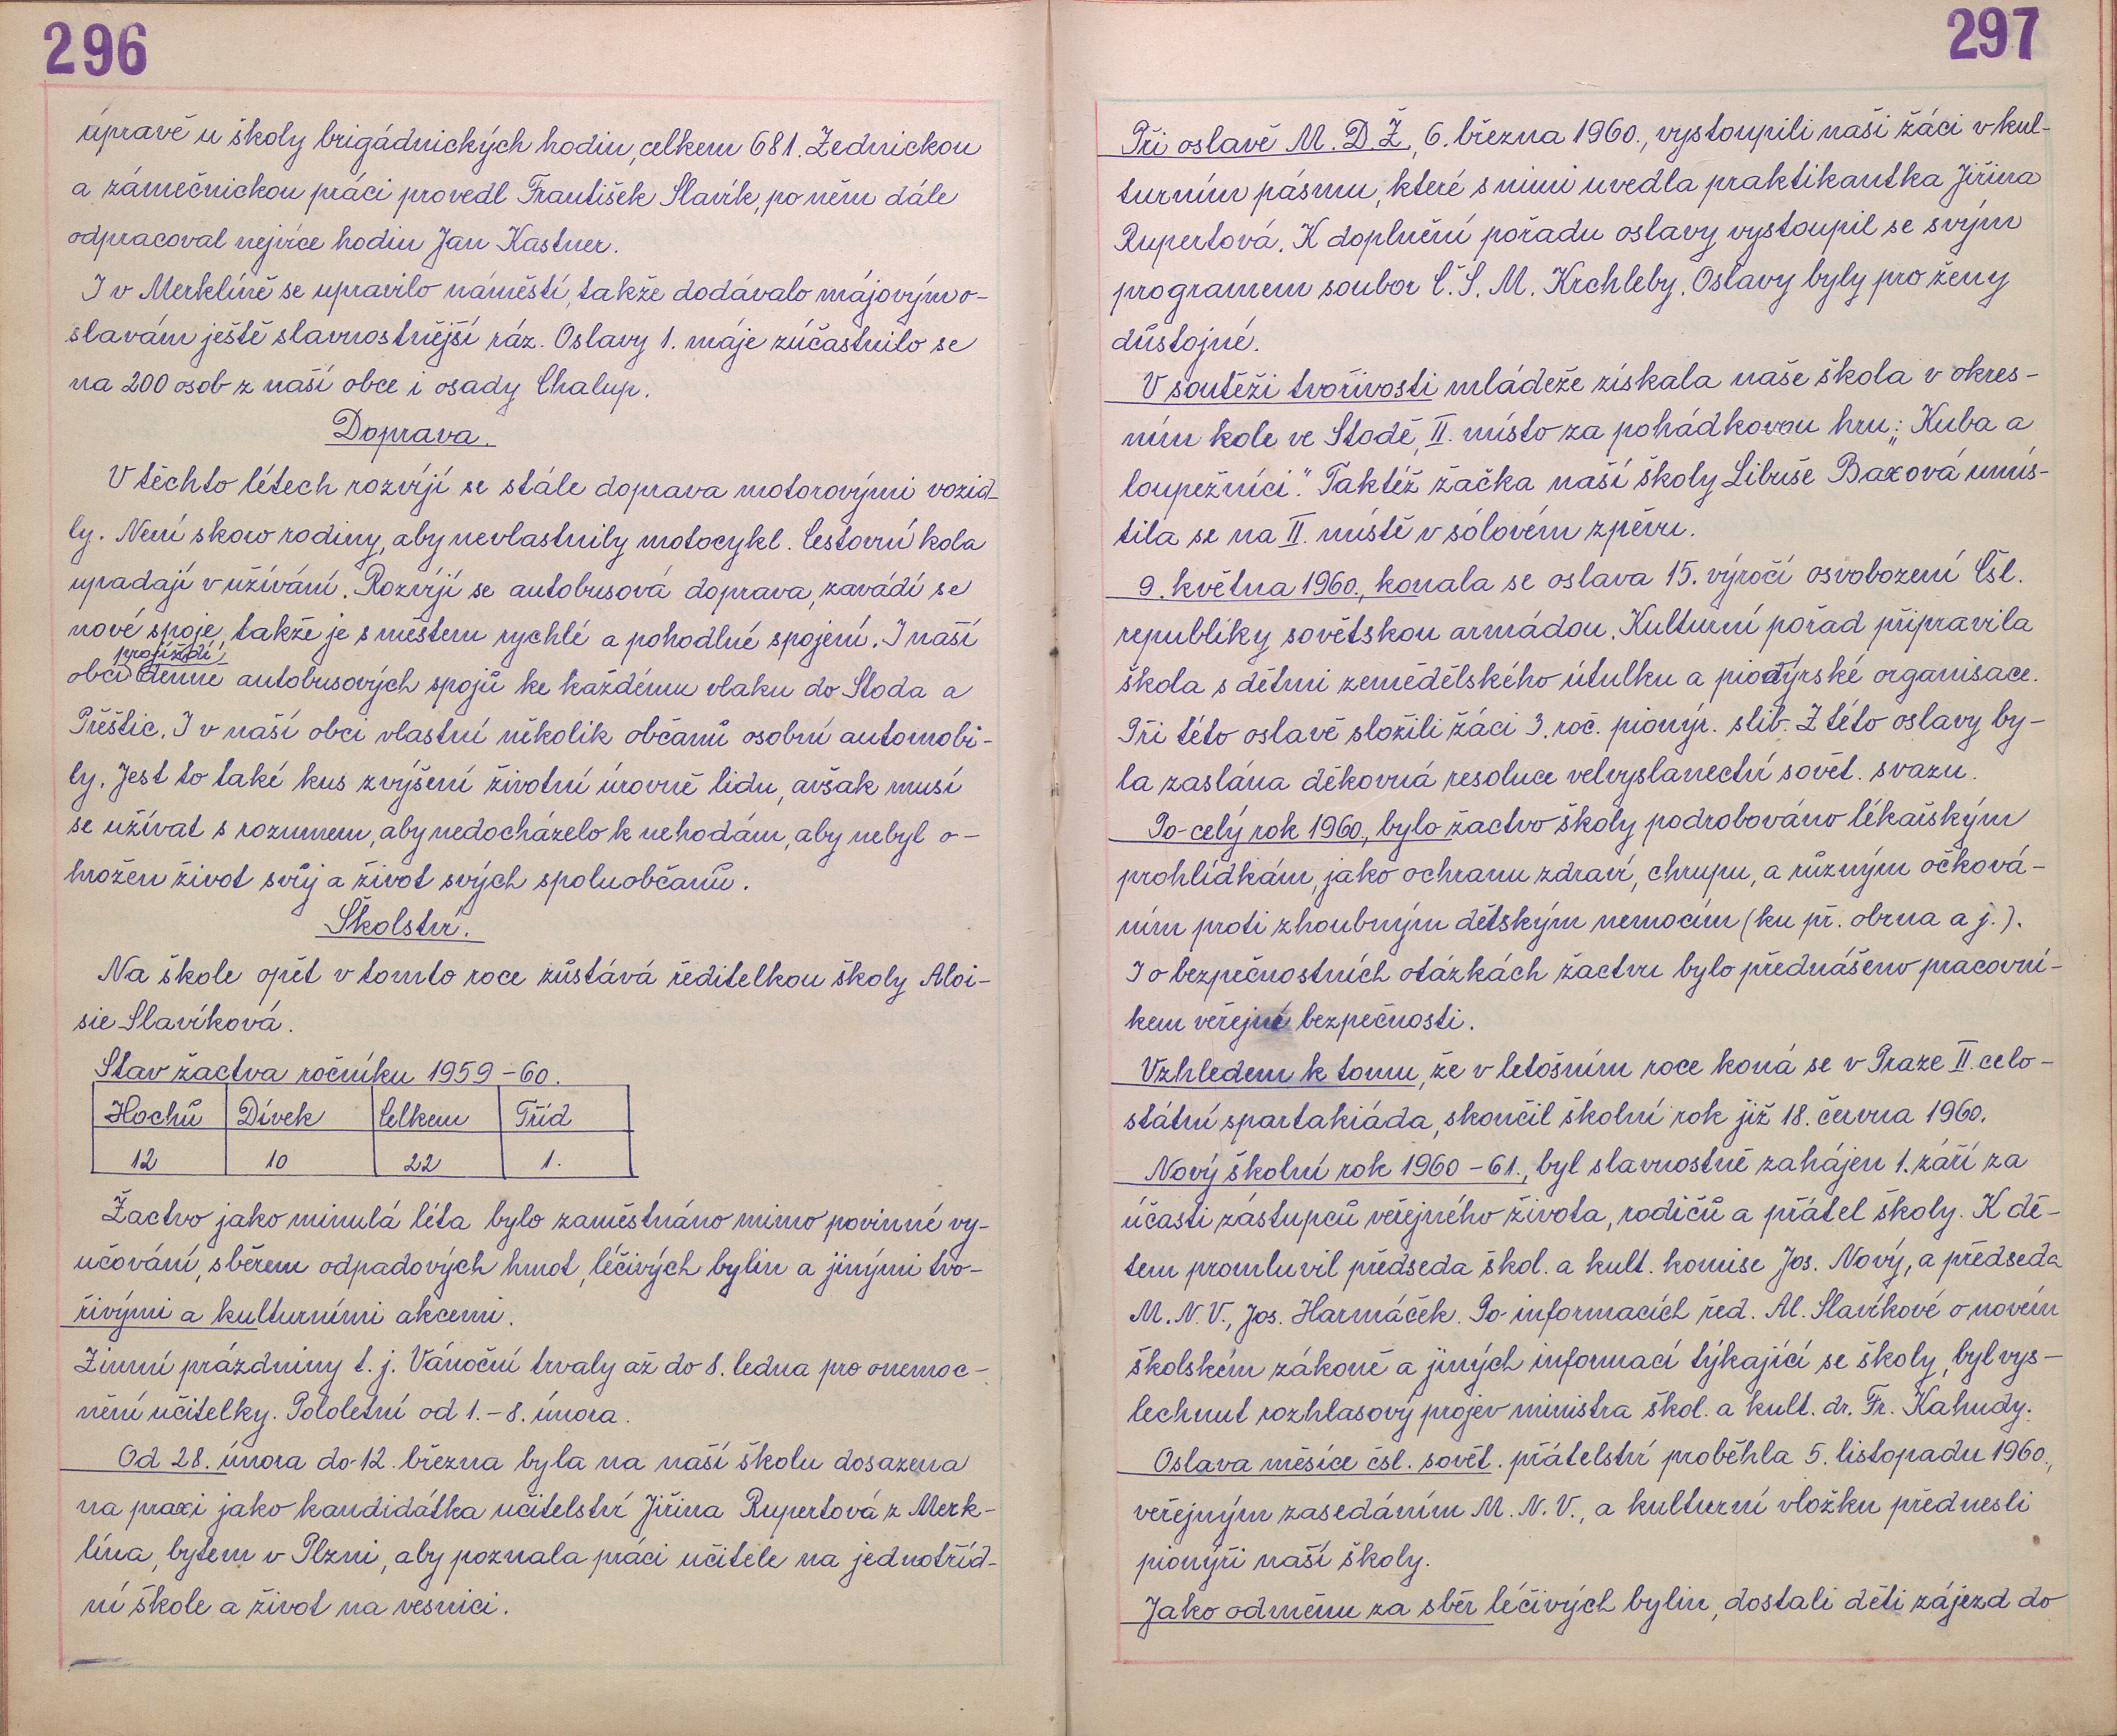 296
úpravě u školy brigádnických hodin, celkem 681. Zednickou
a zámečnickou práci provedl František Slavík, po něm dále
odpracoval nejvíce hodin Jan Kastner.
I v Merklíně se upravilo náměstí, takže dodávalo májovým o-
slavám ještě slavnostnější ráz. Oslavy 1. máje zúčastnilo se
na 200 osob z naší obce i osady Chalup.
Doprava.
V těchto létech rozvíjí se stále doprava motorovými vozid-
ly. Není skoro rodiny, aby nevlastnily motocykl. Cestovní kola
upadají v užívání. Rozvíjí se autobusová doprava, zavádí se
nové spoje, takže je s městem rychlé a pohodlné spojení. I naší
projíždí
obcí denně autobusových spojů ke každému vlaku do Stoda a
Přeštic. I v naší obci vlastní několik občanů osobní automobi-
ly. Jest to také kus zvýšení životní úrovně lidu, avšak musí
se užívat s rozumem, aby nedocházelo k nehodám, aby nebyl o-
hrožen život svůj a život svých spoluobčanů.
Školství.
Na škole opět v tomto roce zůstává ředitelkou školy Aloi-
sie Slavíková.
Stav žactva ročníku 1959-60.
Hochů Dívek Celkem Tříd
12 10 22 1.
Žactvo jako minulá léta bylo zaměstnáno mimo povinné vy-
učování, sběrem odpadových hmot, léčivých bylin a jinými tvo-
řivými a kulturními akcemi.
Zimní prázdniny t. j. Vánoční trvaly až do 8. ledna pro onemoc-
nění učitelky. Pololetní od 1.-8. února.
Od 28. února do 12. března byla na naší školu dosazena
na praxi jako kandidátka učitelství Jiřina Rupertová z Merk-
lína, bytem v Plzni, aby poznala práci učitele na jednotříd-
ní škole a život na vesnici.
297
Při oslavě M. D. Ž., 6. března 1960., vystoupili naši žáci v kul-
turním pásmu, které s nimi uvedla praktikantka Jiřina
Rupertová. K doplnění pořadu oslavy vystoupil se svým
programem soubor Č. S. M. Krchleby. Oslavy byly pro ženy
důstojné.
V soutěži tvořivosti mládeže získala naše škola v okres-
ním kole ve Stodě, II. místo za pohádkovou hru: „Kuba a
loupežníci." Taktéž žačka naší školy Libuše Baxová umís-
tila se na II. místě v sólovém zpěvu.
9. května 1960., konala se oslava 15. výročí osvobození Čsl.
republiky sovětskou armádou. Kulturní pořad připravila
škola s dětmi zemědělského útulku a pionýrské organisace.
Při této oslavě složili žáci 3. roč. pionýr. slib. Z této oslavy by-
la zaslána děkovná resoluce velvyslanectví sovět. svazu.
Po celý rok 1960., bylo žactvo školy podrobováno lékařským
prohlídkám, jako ochranu zdraví, chrupu, a různým očková-
ním proti zhoubným dětským nemocím (ku př. obrna a j.).
I o bezpečnostních otázkách žactvu bylo přednášeno pracovní-
kem veřejné bezpečnosti.
Vzhledem k tomu, že v letošním roce koná se v Praze II. celo-
státní spartakiáda, skončil školní rok již 18. června 1960.
Nový školní rok 1960-61., byl slavnostně zahájen 1. září za
účasti zástupců veřejného života, rodičů a přátel školy. K dě-
tem promluvil předseda škol. a kult. komise Jos. Nový, a předseda
M. N. V., Jos. Harmáček. Po informacích řed. Al. Slavíkové o novém
školském zákoně a jiných informací týkající se školy, byl vys-
lechnut rozhlasový projev ministra škol. a kult. dr. Fr. Kahudy.
Oslava měsíce čsl. sovět. přátelství proběhla 5. listopadu 1960.,
veřejným zasedáním M. N. V., a kulturní vložku přednesli
pionýři naší školy.
Jako odměnu za sběr léčivých bylin, dostali děti zájezd do